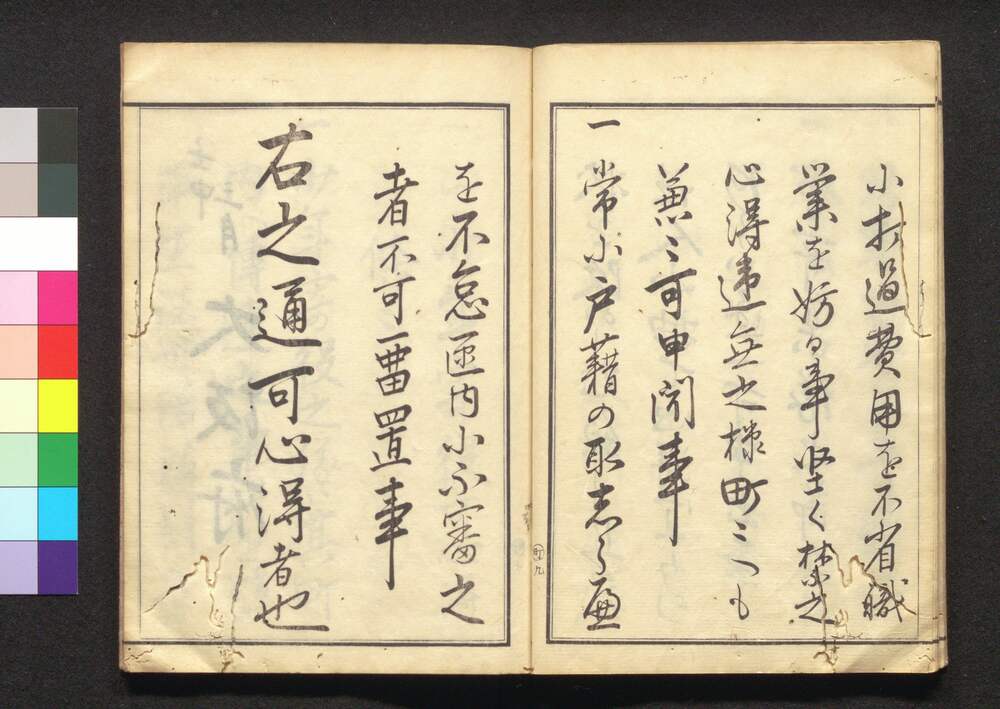 小打過費用を不省職
業を妨る事堅く禁之
心得違無之様町ミへも
兼ミ可申聞事
一 常小戸籍の取志らへ
を不怠区内小不審之
者不可畱置事
右之通可心得者也
町九